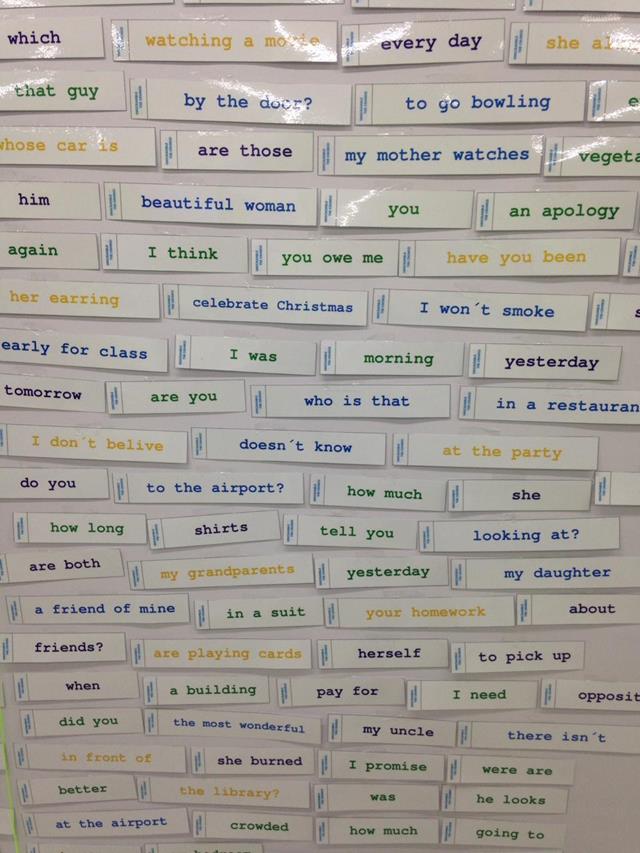 which watching a movie every day she
that guy by the door? to go bowling
whose car is are those my mother watches
him beautiful woman you an apology
again I think you owe me have you been
her earring celebrate Christmas I won´t smoke
early for class I was morning yesterday
tomorrow are you who is that in a restauran
I don´t belive doesn´t know at the party
do you to the airport? how much she
how long shirts tell you looking at?
are both my grandparents yesterday my daughter
a friend of mine in a suit your homework about
friends? are playing cards herself to pick up
when a building pay for I need opposit
did you the most wonderful my uncle there isn´t
in front of she burned I promise were are
better the library? was he looks
at the airport crowded how much going to